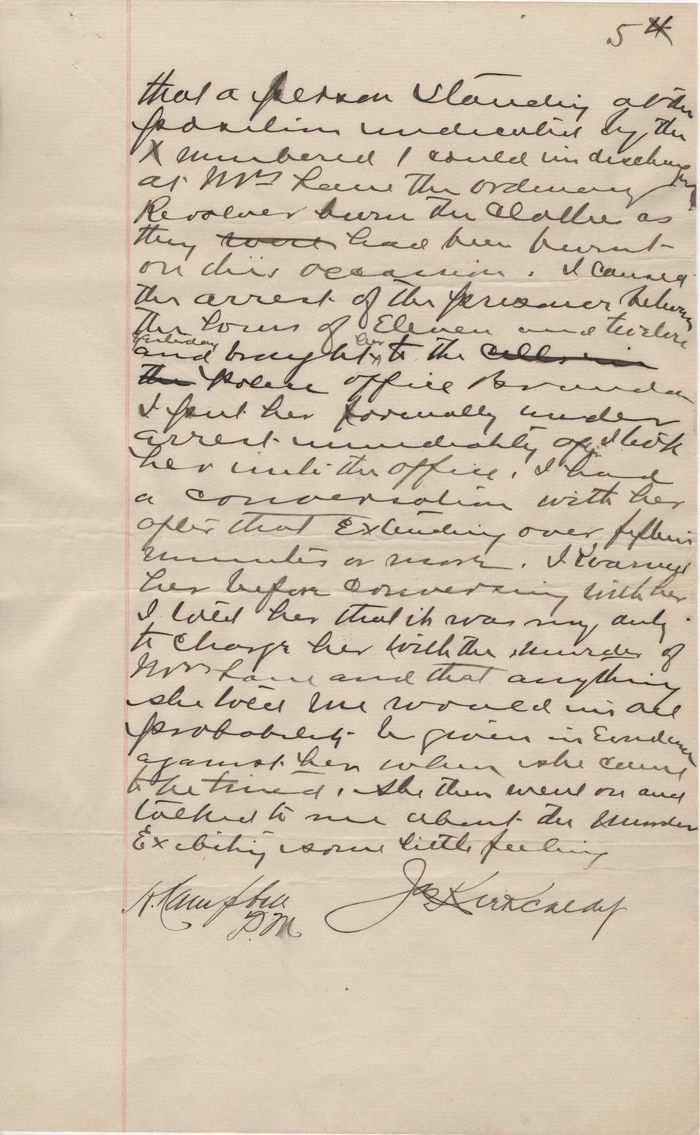 5th
that a person standing at the
position indicated by the
X numbered 1 could in discharging
at Mrs Lane the ordinary
Revolver burn the clothes as
they were had been burnt
on this occasion. I caused
the arrest of the prisoner between
the hours of Eleven and twelve
yesterday her
and brought to the cells in
the Police office Brandon
I put her formally under
arrest immediately after I took
her into the office. I had
a conversation with her
after that Extending over fifteen
minutes or more. I warned
her before conversing with her
I told her that it was my duty
to charge her with the murder of
Mrs Lane and that anything
she told me would in all
probability be given in Evidence
against her when she came
to be tried. She then went on and
talked to me about the murder
Exibiting some little feeling
Jas Kirkcaldy
P.M.